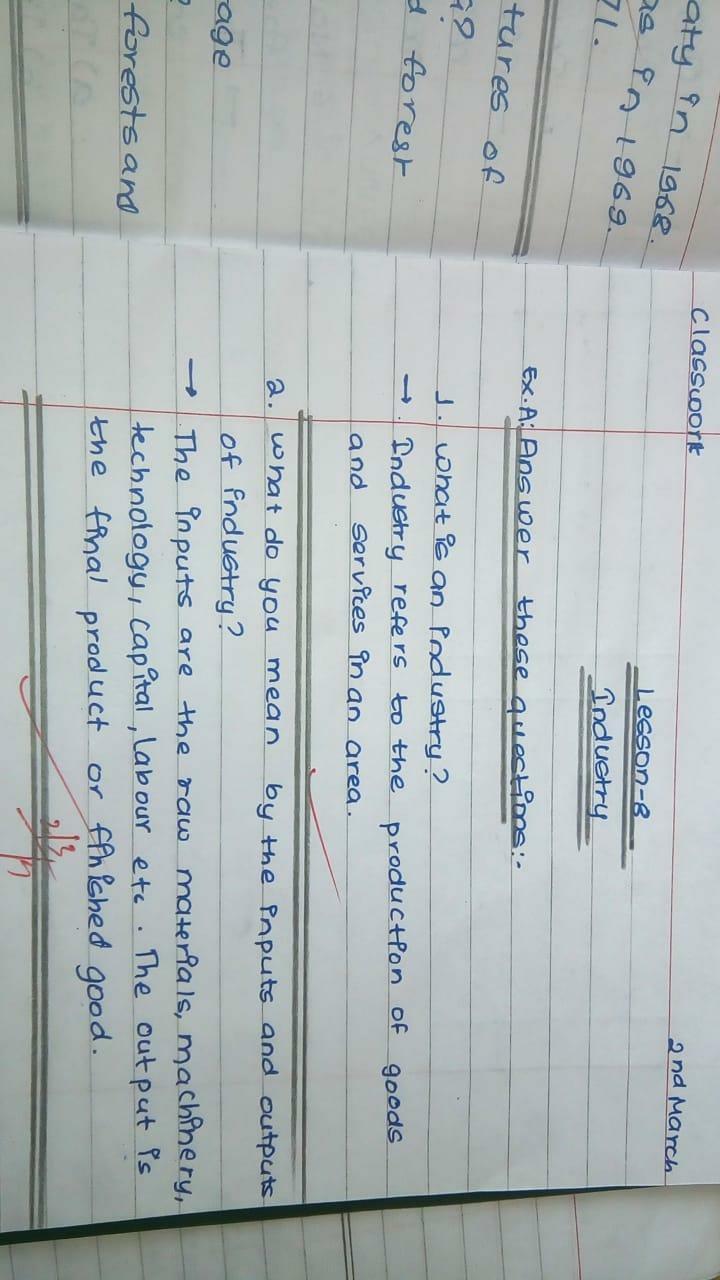 aty in 1968.
as in 1969.
71.
tures of
g?
d forest
age
forests and
Classwork
2nd March
Lesson-8
Industry
Ex.A: Answer these questions:-
1. What is an industry?
→ Industry refers to the production of goods
and services in an area.
2. what do you mean by the inputs and outputs
of industry?
→ The inputs are the raw materials, machinery,
technology, capital, labour etc. The output is
the final product or finished good.
2/3